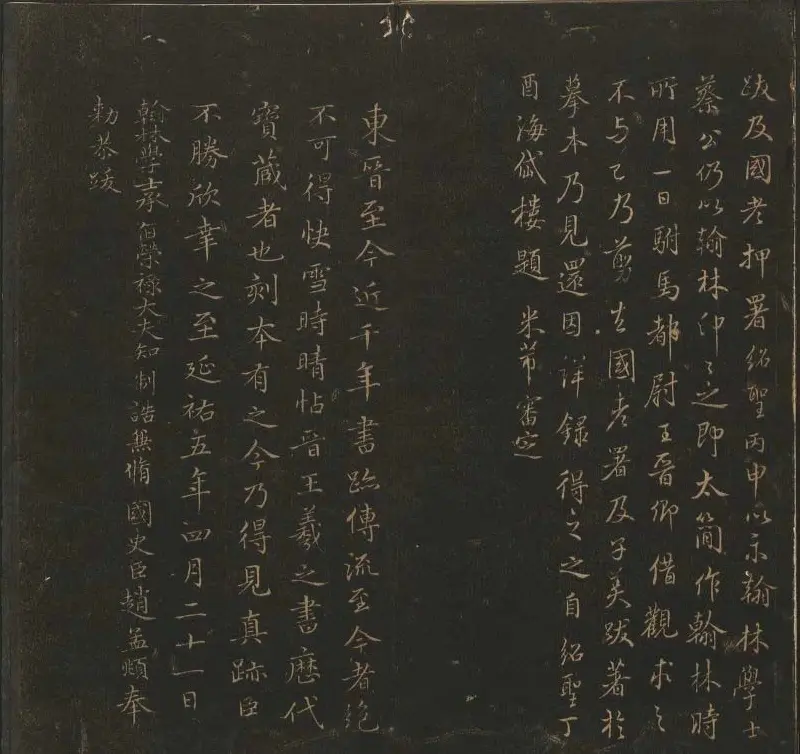 跋及國老押署紹聖丙申以示翰林學士
蔡公仍以翰林印〻之即太簡作翰林時
所用一日駙馬都尉王晉卿借觀求之
不与已乃剪去國老署及子美跋著於
摹本乃見還因詳錄得之之自紹聖丁
酉海岱樓題 米芾審定
東晉至今近千年書跡傳流至今者絕
不可得快雪時晴帖晉王羲之書歷代
寶藏者也刻本有之今乃得見真跡臣
不勝欣幸之至延祐五年四月二十一日
翰林學士承旨榮祿大夫知制誥兼脩國史臣趙孟頫奉
勑恭跋